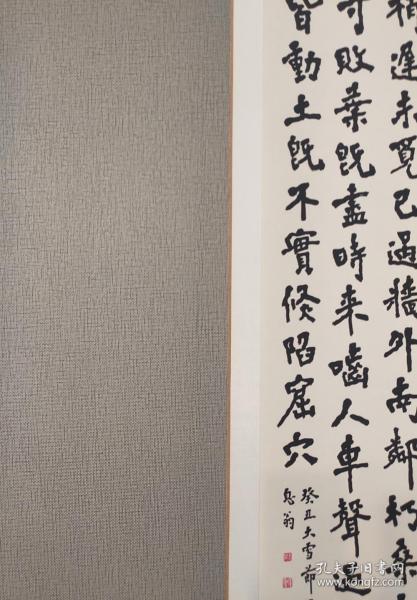 遲未覓已過牆外南鄰朽桑
敗葉既盡時来嚙人車聲
皆動土既不實倏陷窟穴
癸丑大雪前
息翁
孔夫子旧书网